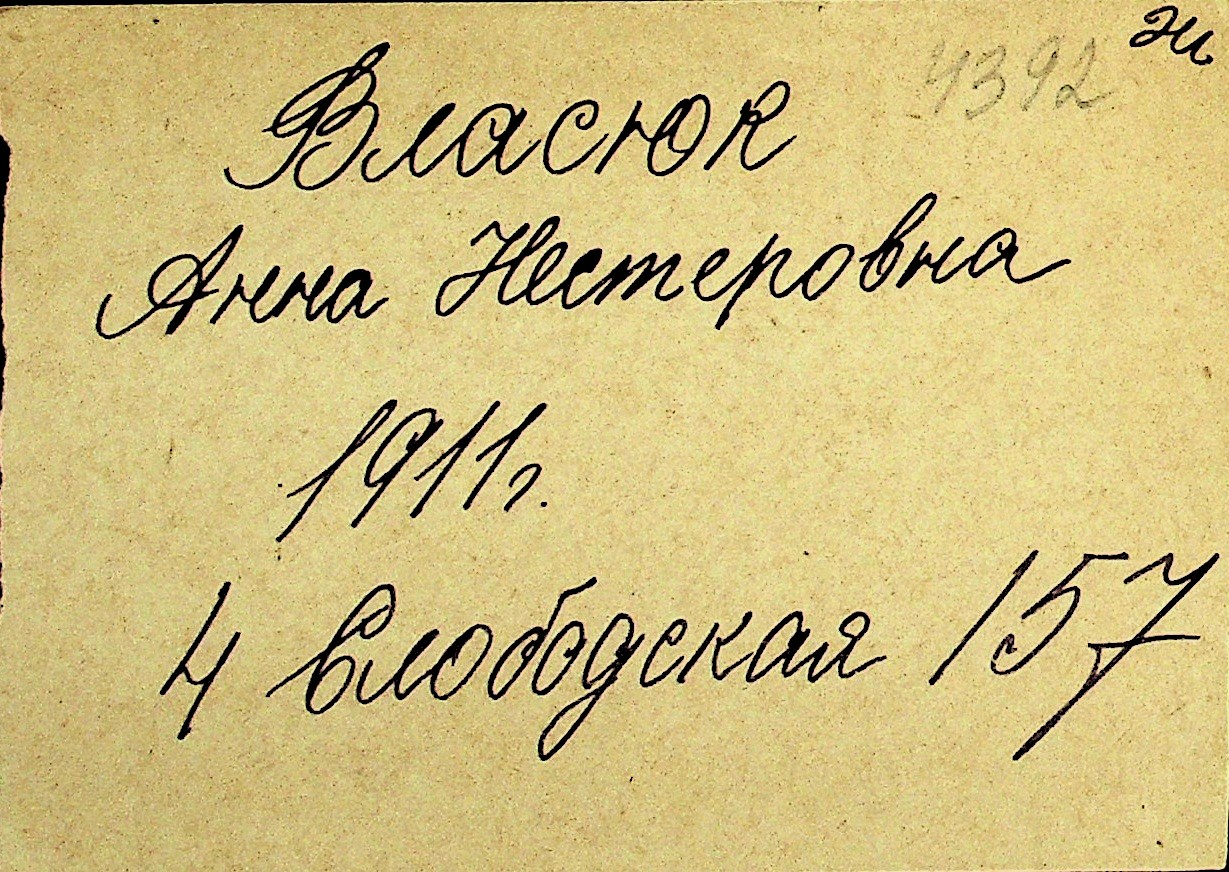 4392 ж
Власюк
Анна Нестеровна
1911г.
4 Слободская 157